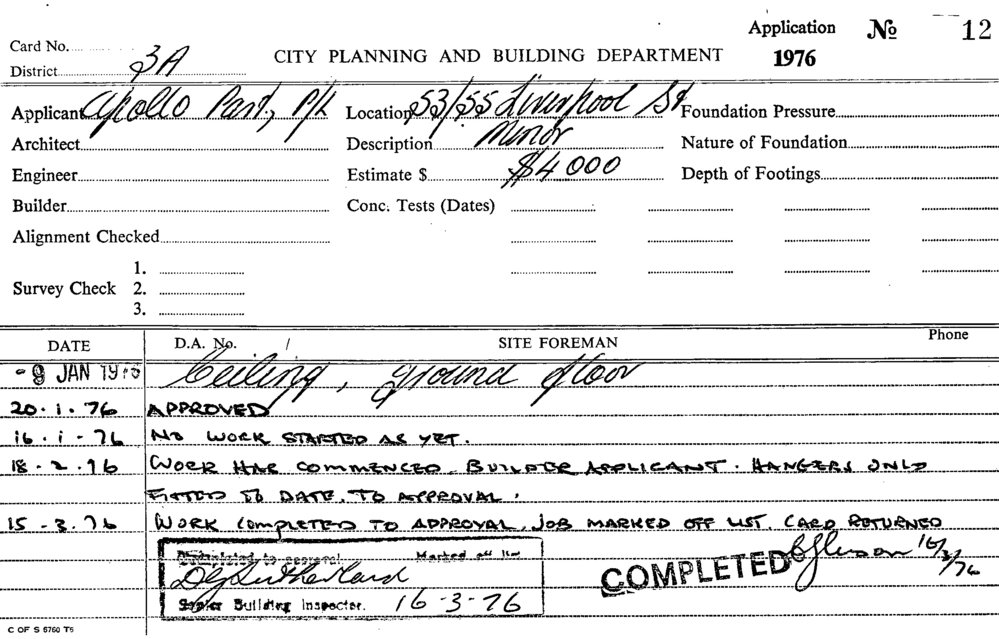 Application No 12
Card No.
District 3A
CITY PLANNING AND BUILDING DEPARTMENT
1976
Applicant Apollo Part, P/L
Location 53/55 Liverpool St
Foundation Pressure
Architect
Description Minor
Nature of Foundation
Engineer
Estimate $ $4000
Depth of Footings
Builder
Conc. Tests (Dates)
Alignment Checked
Survey Check 1.
2.
3.
DATE
D.A. No. /
SITE FOREMAN
Phone
-9 JAN 1976 Ceiling, ground floor
20.1.76 APPROVED
16.1-76 NO WORK STARTED AS YET.
18.2.76 WORK HAS COMMENCED. BUILDER APPLICANT. HANGERS ONLY
FITTED TO DATE. TO APPROVAL.
15-3.76 WORK COMPLETED TO APPROVAL. JOB MARKED OFF LIST. CARD RETURNED
Completed to approval Marked off list
D G Sutherland
Senior Building Inspector. 16-3-76
COMPLETED
16/3/76
C OF S 5760 T5